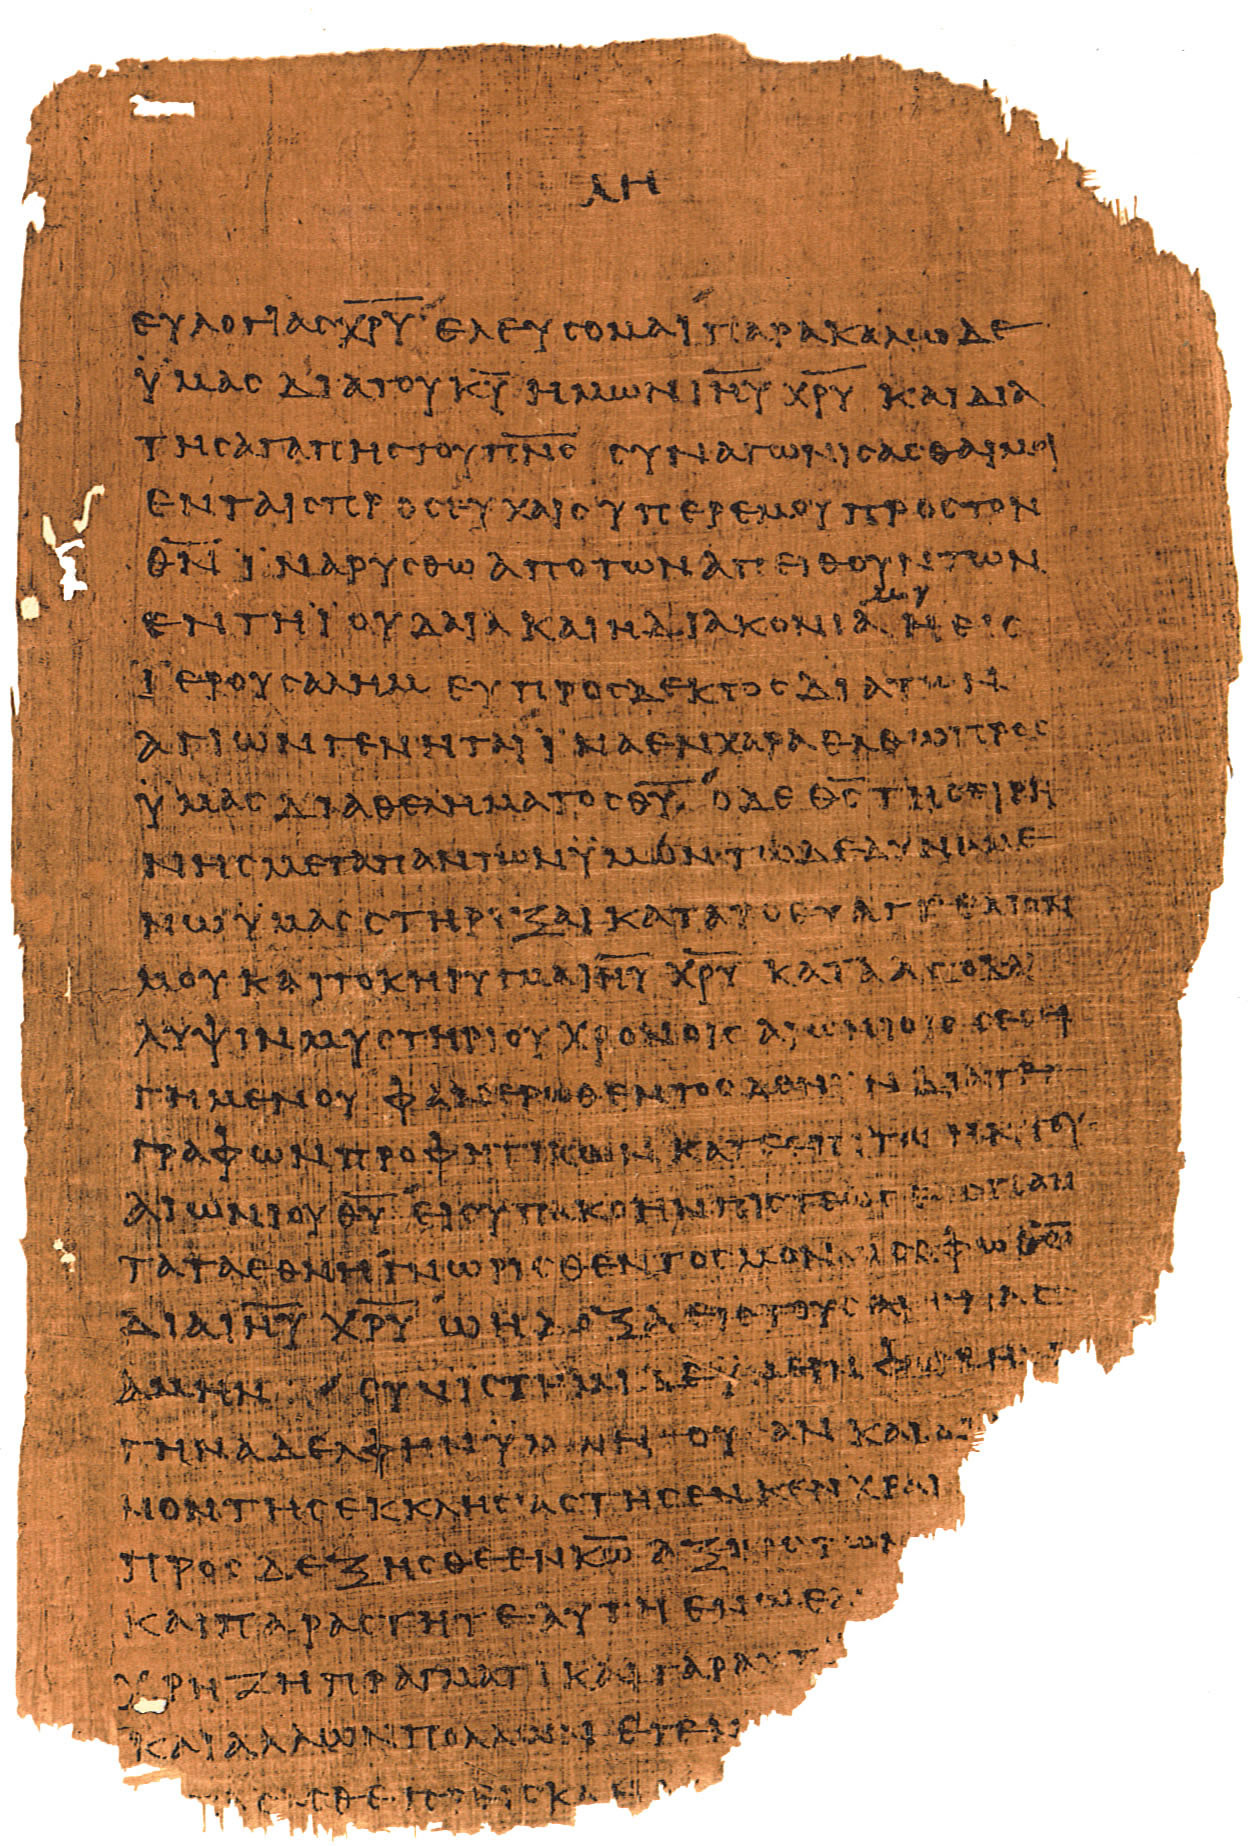 ΛΗ
ΕΥΛΟΓΙΑΣ ΧΡΥ ΕΛΕΥΣΟΜΑΙ ΠΑΡΑΚΑΛΩ ΔΕ
ΫΜΑΣ ΔΙΑ ΤΟΥ ΚΥ ΗΜΩΝ ΙΗΥ ΧΡΥ ΚΑΙ ΔΙΑ
ΤΗΣ ΑΓΑΠΗΣ ΤΟΥ ΠΝΣ ΣΥΝΑΓΩΝΙΣΑΣΘΑΙ ΜΟΙ
ΕΝ ΤΑΙΣ ΠΡΟΣΕΥΧΑΙΣ ΥΠΕΡ ΕΜΟΥ ΠΡΟΣ ΤΟΝ
ΘΝ ΪΝΑ ΡΥΣΘΩ ΑΠΟ ΤΩΝ ΑΠΕΙΘΟΥΝΤΩΝ
ΕΝ ΤΗ ΪΟΥΔΑΙΑ ΚΑΙ Η ΔΙΑΚΟΝΙΑ ΜΟΥ Η ΕΙΣ
ΪΕΡΟΥΣΑΛΗΜ ΕΥΠΡΟΣΔΕΚΤΟΣ ΔΙΑ ΤΩΝ
ΑΓΙΩΝ ΓΕΝΗΤΑΙ ΪΝΑ ΕΝ ΧΑΡΑ ΕΛΘΩ ΠΡΟΣ
ΫΜΑΣ ΔΙΑ ΘΕΛΗΜΑΤΟΣ ΘΥ Ο ΔΕ ΘΣ ΤΗΣ ΕΙΡΗ
ΝΗΣ ΜΕΤΑ ΠΑΝΤΩΝ ΫΜΩΝ ΤΩ ΔΕ ΔΥΝΑΜΕ
ΝΩ ΫΜΑΣ ΣΤΗΡΙΞΑΙ ΚΑΤΑ ΤΟ ΕΥΑΓΓΕΛΙΟΝ
ΜΟΥ ΚΑΙ ΤΟ ΚΗΡΥΓΜΑ ΙΗΥ ΧΡΥ ΚΑΤΑ ΑΠΟΚΑ
ΛΥΨΙΝ ΜΥΣΤΗΡΙΟΥ ΧΡΟΝΟΙΣ ΑΙΩΝΙΟΙΣ ΣΕΣΕΙ
ΓΗΜΕΝΟΥ ΦΑΝΕΡΩΘΕΝΤΟΣ ΔΕ ΝΥΝ ΔΙΑ ΤΕ
ΓΡΑΦΩΝ ΠΡΟΦΗΤΙΚΩΝ ΚΑΤ ΕΠΙΤΑΓΗΝ ΤΟΥ
ΑΙΩΝΙΟΥ ΘΥ ΕΙΣ ΥΠΑΚΟΗΝ ΠΙΣΤΕΩΣ ΕΙΣ ΠΑΝ
ΤΑ ΤΑ ΕΘΝΗ ΓΝΩΡΙΣΘΕΝΤΟΣ ΜΟΝΩ ΣΟΦΩ ΘΩ
ΔΙΑ ΙΗΥ ΧΡΥ Ω Η ΔΟΞΑ ΕΙΣ ΤΟΥΣ ΑΙΩΝΑΣ
ΑΜΗΝ ΣΥΝΙΣΤΗΜΙ ΔΕ ΫΜΕΙΝ ΦΟΙΒΗΝ
ΤΗΝ ΑΔΕΛΦΗΝ ΫΜΩΝ ΟΥΣΑΝ ΚΑΙ ΔΙ
ΝΟΝ ΤΗΣ ΕΚΚΛΗΣΙΑΣ ΤΗΣ ΕΝ ΚΕΝΧΡΕΑΙ
ΠΡΟΣΔΕΞΗΣΘΕ ΕΝ ΚΩ ΑΞΙΩΣ ΤΩΝ
ΚΑΙ ΠΑΡΑΣΤΗΤΕ ΑΥΤΗ ΕΝ
ΧΡΗΖΗ ΠΡΑΓΜΑΤΙ ΚΑΙ ΓΑΡ ΑΥΤ
ΚΑΙ ΑΛΛΩΝ ΠΟΛΛΩΝ
ΑΣΠΑΣΑΣΘΕ ΠΡΕΙΣΚΑ